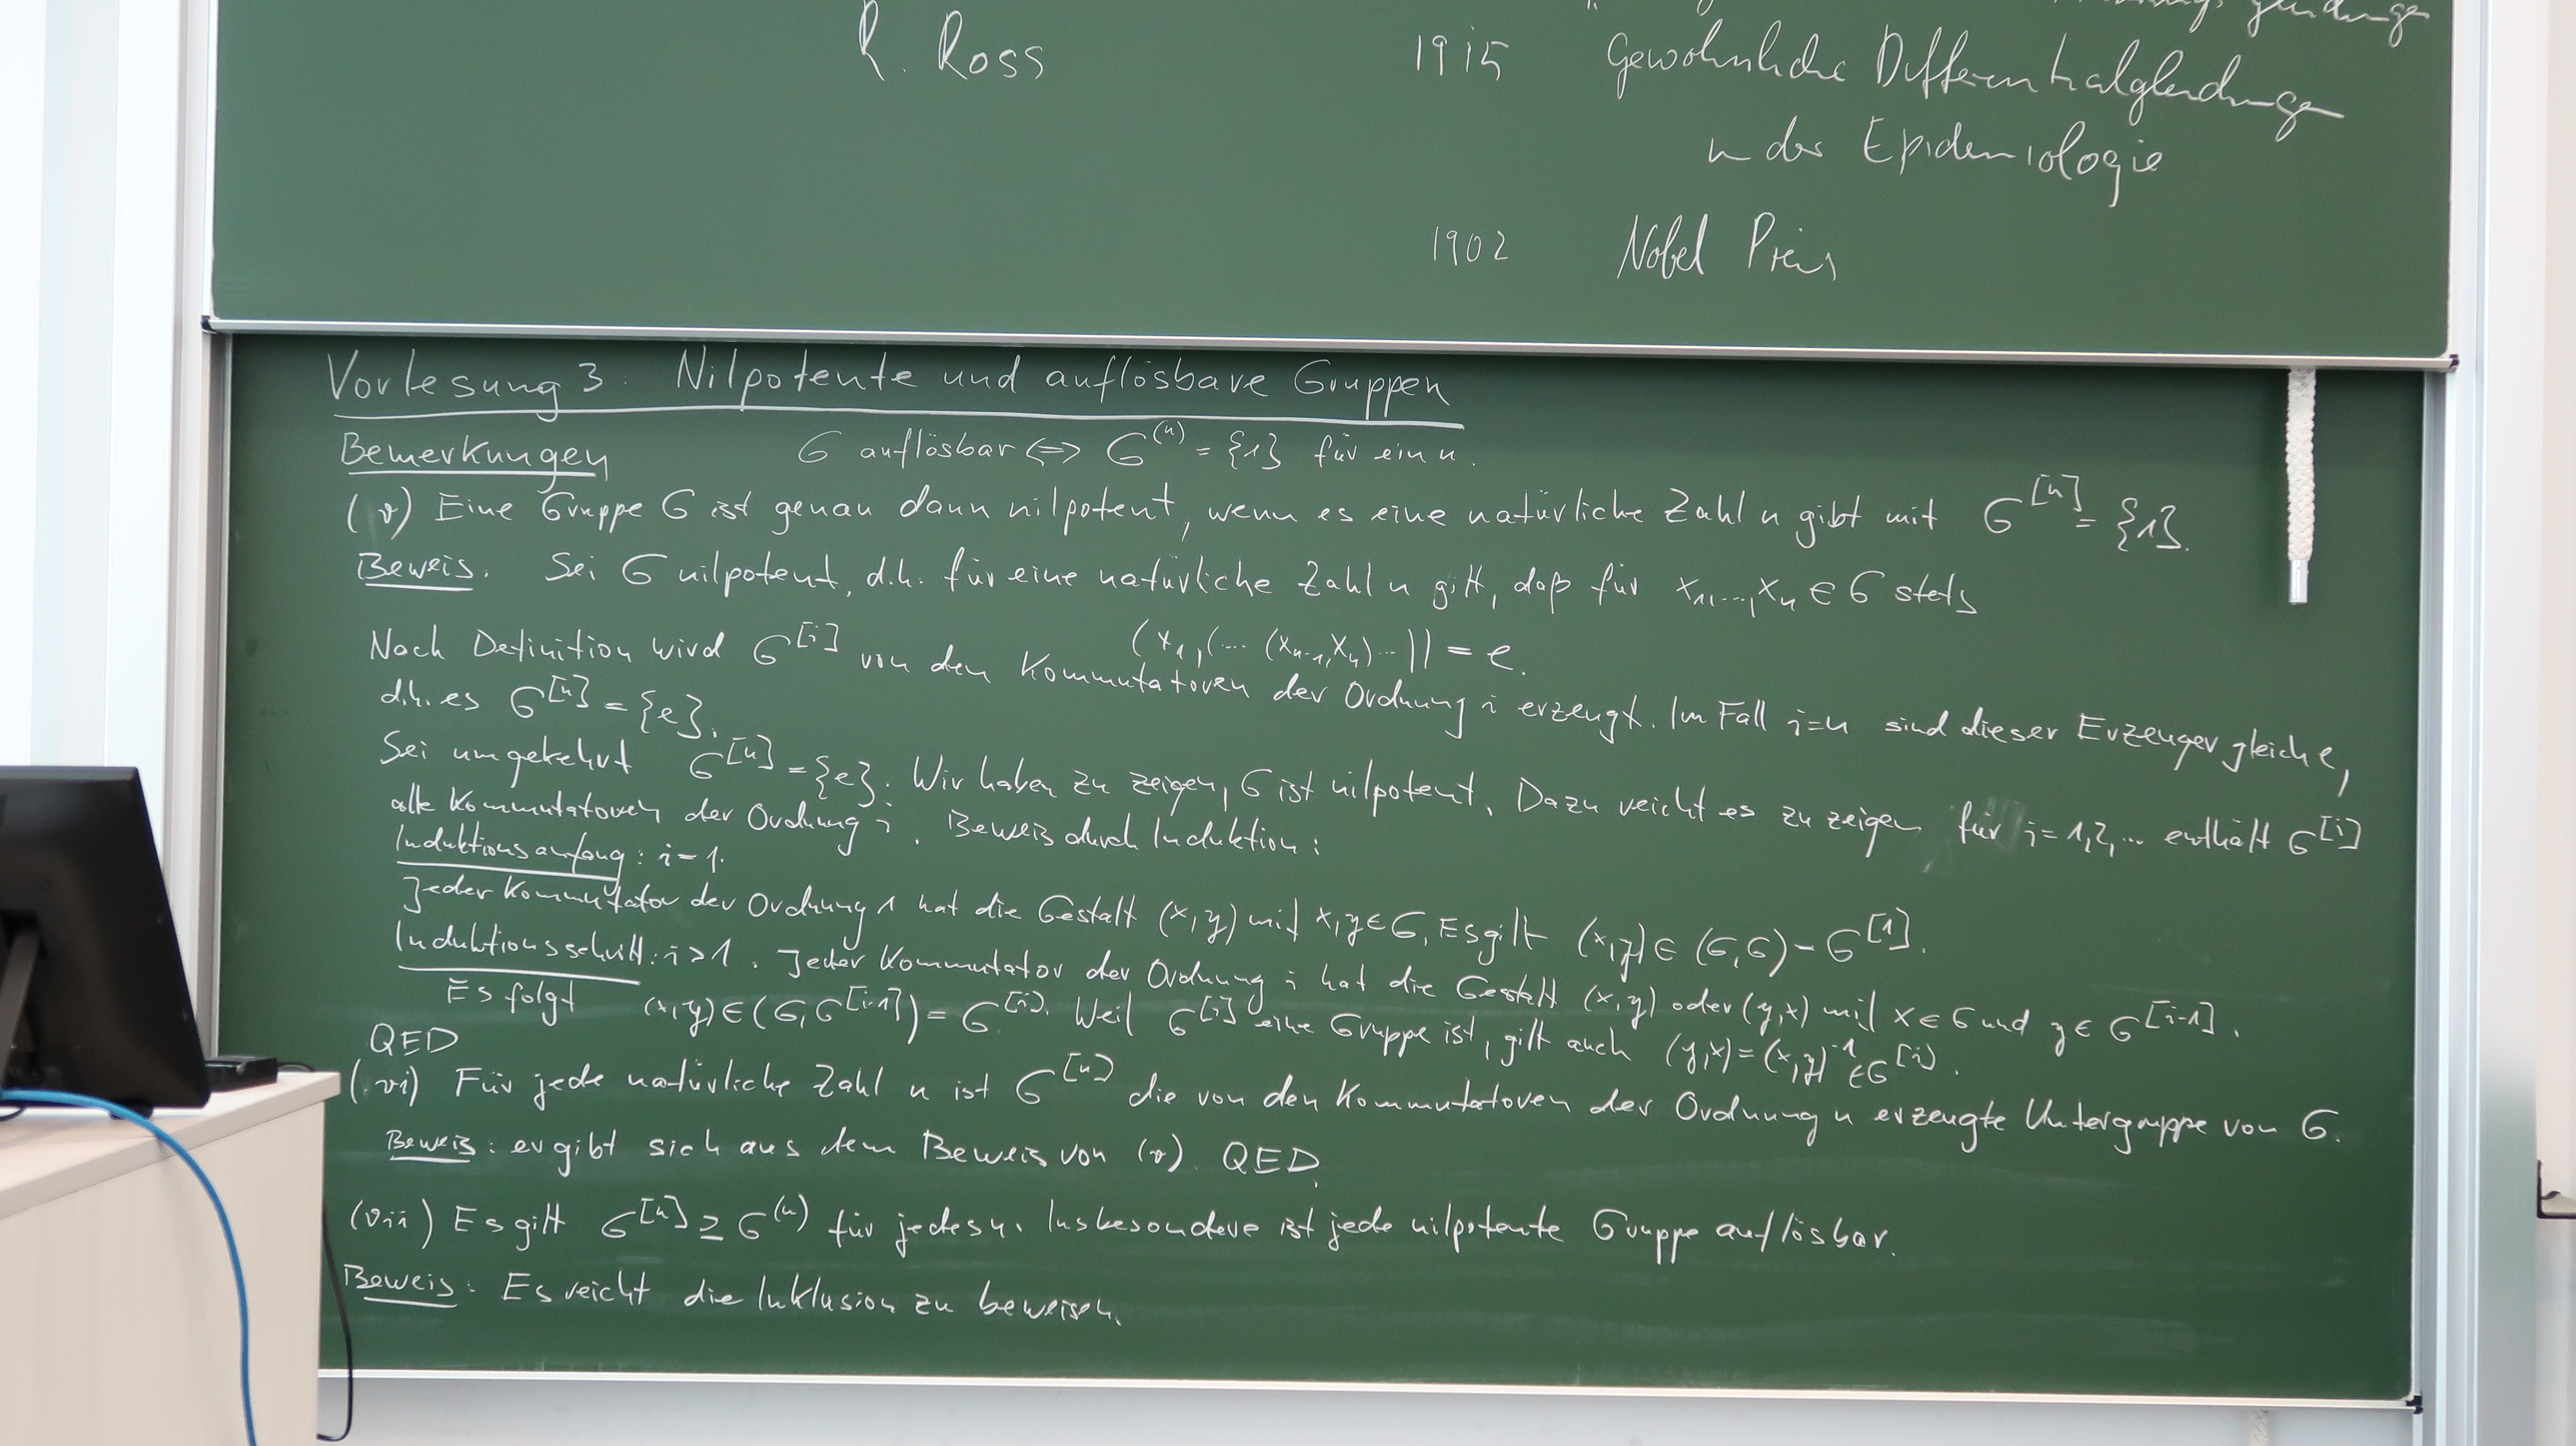 R. Ross 1915 Gewöhnliche Differentialgleichungen
in der Epidemiologie
1902 Nobel Preis
Vorlesung 3: Nilpotente und auflösbare Gruppen
Bemerkungen G auflösbar ⇔ G^(n) = {1} für ein n.
(v) Eine Gruppe G ist genau dann nilpotent, wenn es eine natürliche Zahl n gibt mit G^[n] = {1}.
Beweis. Sei G nilpotent, d.h. für eine natürliche Zahl n gilt, daß für x_1,...,x_n ∈ G stets
(x_1,(... (x_{n-1},x_n)...)) = e.
Nach Definition wird G^[i] von den Kommutatoren der Ordnung i erzeugt. Im Fall i=n sind dieser Erzeuger gleich e,
d.h. es G^[n] = {e}.
Sei umgekehrt G^[n] = {e}. Wir haben zu zeigen, G ist nilpotent. Dazu reicht es zu zeigen für i=1,2,... enthält G^[i]
alle Kommutatoren der Ordnung i. Beweis durch Induktion:
Induktionsanfang: i=1.
Jeder Kommutator der Ordnung 1 hat die Gestalt (x,y) mit x,y ∈ G. Es gilt (x,y) ∈ (G,G) = G^[1].
Induktionsschritt: i>1. Jeder Kommutator der Ordnung i hat die Gestalt (x,y) oder (y,x) mit x ∈ G und y ∈ G^[i-1].
Es folgt (x,y) ∈ (G,G^[i-1]) = G^[i]. Weil G^[i] eine Gruppe ist, gilt auch (y,x) = (x,y)^-1 ∈ G^[i].
QED
(vi) Für jede natürliche Zahl n ist G^[n] die von den Kommutatoren der Ordnung n erzeugte Untergruppe von G.
Beweis: ergibt sich aus dem Beweis von (v). QED.
(vii) Es gilt G^[n] ⊇ G^(n) für jedes n. Insbesondere ist jede nilpotente Gruppe auflösbar.
Beweis: Es reicht die Inklusion zu beweisen.